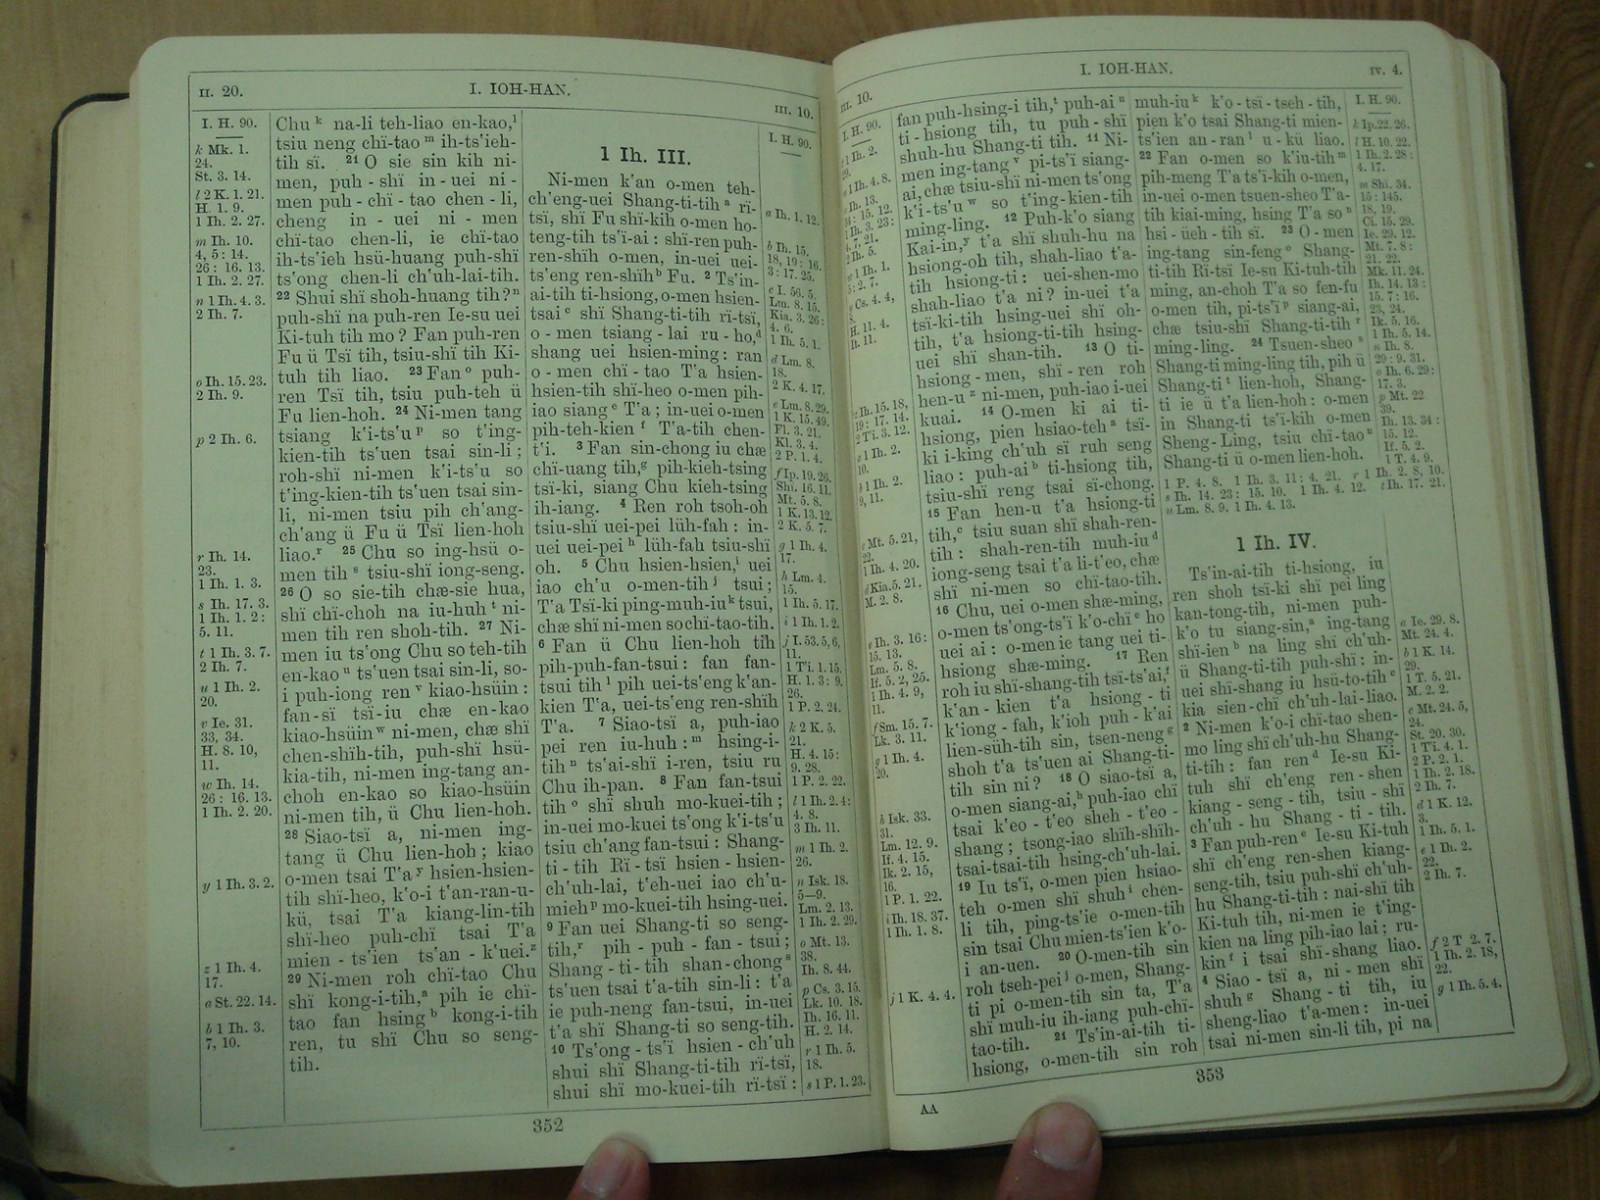 II. 20.
I. IOH-HAN.
III. 10.
I. H. 90.
k Mk. 1.
24.
St. 3. 14.
l 2 K. 1. 21.
H. 1. 9.
1 Ih. 2. 27.
m Ih. 10.
4, 5 : 14.
26 : 16. 13.
1 Ih. 2. 27.
n 1 Ih. 4. 3.
2 Ih. 7.
o Ih. 15. 23.
2 Ih. 9.
p 2 Ih. 6.
r Ih. 14.
23.
1 Ih. 1. 3.
s Ih. 17. 3.
1 Ih. 1. 2 :
5. 11.
t 1 Ih. 3. 7.
2 Ih. 7.
u 1 Ih. 2.
20.
v Ie. 31.
33, 34.
H. 8. 10,
11.
w Ih. 14.
26 : 16. 13.
1 Ih. 2. 20.
y 1 Ih. 3. 2.
z 1 Ih. 4.
17.
a St. 22. 14.
b 1 Ih. 3.
7, 10.
Chu k na-li teh-liao en-kao, l
tsiu neng chï-tao m ih-ts'ieh-
tih sï. 21 O sie sin kih ni-
men, puh - shï in - uei ni -
men puh - chï - tao chen - li,
cheng in - uei ni - men
chï-tao chen-li, ie chï-tao
ih-ts'ieh hsü-huang puh-shï
ts'ong chen-li ch'uh-lai-tih.
22 Shui shï shoh-huang tih? n
puh-shï na puh-ren Ie-su uei
Ki-tuh tih mo? Fan puh-ren
Fu ü Tsï tih, tsiu-shï tih Ki-
tuh tih liao. 23 Fan o puh-
ren Tsï tih, tsiu puh-teh ü
Fu lien-hoh. 24 Ni-men tang
tsiang k'i-ts'u p so t'ing-
kien-tih ts'uen tsai sin-li;
roh-shï ni-men k'i-ts'u so
t'ing-kien-tih ts'uen tsai sin-
li, ni-men tsiu pih ch'ang-
ch'ang ü Fu ü Tsï lien-hoh
liao. r 25 Chu so ing-hsü o-
men tih s tsiu-shï iong-seng.
26 O so sie-tih chæ-sie hua,
shï chï-choh na iu-huh t ni-
men tih ren shoh-tih. 27 Ni-
men iu ts'ong Chu so teh-tih
en-kao u ts'uen tsai sin-li, so-
i puh-iong ren v kiao-hsüin :
fan-sï tsï-iu chæ en-kao
kiao-hsüin w ni-men, chæ shï
chen-shïh-tih, puh-shï hsü-
kia-tih, ni-men ing-tang an-
choh en-kao so kiao-hsüin
ni-men tih, ü Chu lien-hoh.
28 Siao-tsï a, ni-men ing-
tang ü Chu lien-hoh ; kiao
o-men tsai T'a y hsien-hsien-
tih shï-heo, k'o-i t'an-ran-u-
kü, tsai T'a kiang-lin-tih
shï-heo puh-chï tsai T'a
mien - ts'ien ts'an - k'uei. z
29 Ni-men roh chï-tao Chu
shï kong-i-tih, a pih ie chï-
tao fan hsing b kong-i-tih
ren, tu shï Chu so seng-
tih.
1 Ih. III.
Ni-men k'an o-men teh-
ch'eng-uei Shang-ti-tih a rï-
tsï, shï Fu shï-kih o-men ho-
teng-tih ts'ï-ai : shï-ren puh-
ren-shïh o-men, in-uei uei-
ts'eng ren-shïh b Fu. 2 Ts'in-
ai-tih ti-hsiong, o-men hsien-
tsai c shï Shang-ti-tih rï-tsï,
o - men tsiang - lai ru - ho, d
shang uei hsien-ming : ran
o - men chï - tao T'a hsien-
hsien-tih shï-heo o-men pih-
iao siang e T'a ; in-uei o-men
pih-teh-kien f T'a-tih chen-
t'i. 3 Fan sin-chong iu chæ
chï-uang tih, g pih-kieh-tsing
tsï-ki, siang Chu kieh-tsing
ih-iang. 4 Ren roh tsoh-oh
tsiu-shï uei-pei lüh-fah : in-
uei uei-pei h lüh-fah tsiu-shï
oh. 5 Chu hsien-hsien, i uei
iao ch'u o-men-tih j tsui ;
T'a Tsï-ki ping-muh-iu k tsui,
chæ shï ni-men so chï-tao-tih.
6 Fan ü Chu lien-hoh tih
pih-puh-fan-tsui : fan fan-
tsui tih l pih uei-ts'eng k'an-
kien T'a, uei-ts'eng ren-shïh
T'a. 7 Siao-tsï a, puh-iao
pei ren iu-huh : m hsing-i-
tih n ts'ai-shï i-ren, tsiu ru
Chu ih-pan. 8 Fan fan-tsui
tih o shï shuh mo-kuei-tih ;
in-uei mo-kuei ts'ong k'i-ts'u
tsiu ch'ang fan-tsui : Shang-
ti - tih Rï - tsï hsien - hsien-
ch'uh-lai, t'eh-uei iao ch'u-
mieh p mo-kuei-tih hsing-uei.
9 Fan uei Shang-ti so seng-
tih, r pih - puh - fan - tsui ;
Shang - ti - tih shan-chong s
ts'uen tsai t'a-tih sin-li : t'a
ie puh-neng fan-tsui, in-uei
t'a shï Shang-ti so seng-tih.
10 Ts'ong - ts'ï hsien - ch'uh
shui shï Shang-ti-tih rï-tsï,
shui shï mo-kuei-tih rï-tsï :
I. H. 90.
a Ih. 1. 12.
b Ih. 15.
18, 19 : 16.
3 : 17. 25.
c I. 56. 5.
Lm. 8. 15.
Kia. 3. 26 :
4. 6.
1 Ih. 5. 1.
d Lm. 8.
18.
2 K. 4. 17.
e Lm. 8. 29.
1 K. 15. 49.
Fl. 3. 21.
Kl. 3. 4.
2 P. 1. 4.
f Ip. 19. 26.
Shï. 16. 11.
Mt. 5. 8.
1 K. 13. 12.
2 K. 5. 7.
g 1 Ih. 4.
17.
h Lm. 4.
15.
1 Ih. 5. 17.
i 1 Ih. 1. 2.
j I. 53. 5, 6,
11.
1 T'i. 1. 15.
H. 1. 3 : 9.
26.
1 P. 2. 24.
k 2 K. 5.
21.
H. 4. 15 :
9. 28.
1 P. 2. 22.
l 1 Ih. 2. 4 :
4. 8.
3 Ih. 11.
m 1 Ih. 2.
26.
n Isk. 18.
5—9.
Lm. 2. 13.
1 Ih. 2. 29.
o Mt. 13.
38.
Ih. 8. 44.
p Cs. 3. 15.
Lk. 10. 18.
Ih. 16. 11.
H. 2. 14.
r 1 Ih. 5.
18.
s 1 P. 1. 23.
352
III. 10.
I. IOH-HAN.
IV. 4.
I. H. 90.
t 1 Ih. 2.
29.
u 1 Ih. 4. 8.
1 Ih. 3. 23 :
w 1 Ih. 1.
5 : 2. 7.
y Cs. 4. 4,
8.
H. 11. 4.
z Ih. 15. 18,
19 : 17. 14.
2 Ti. 3. 12.
a 1 Ih. 2.
10.
b 1 Ih. 2.
9, 11.
c Mt. 5. 21,
22.
1 Ih. 4. 20.
d Kia. 5. 21.
M. 2. 8.
e Ih. 3. 16 :
15. 13.
Lm. 5. 8.
If. 5. 2, 25.
1 Ih. 4. 9,
11.
f Sm. 15. 7.
Lk. 3. 11.
g 1 Ih. 4.
20.
h Isk. 33.
31.
Lm. 12. 9.
If. 4. 15.
Ik. 2. 15,
16.
1 P. 1. 22.
i Ih. 18. 37.
1 Ih. 1. 8.
j 1 K. 4. 4.
fan puh-hsing-i tih, t puh-ai u
ti - hsiong tih, tu puh - shï
shuh-hu Shang-ti tih. 11 Ni-
men ing-tang v pi-ts'ï siang-
ai, chæ tsiu-shï ni-men ts'ong
k'i-ts'u w so t'ing-kien-tih
ming-ling. 12 Puh-k'o siang
Kai-in, y t'a shï shuh-hu na
hsiong-oh tih, shah-liao t'a-
tih hsiong-ti : uei-shen-mo
shah-liao t'a ni ? in-uei t'a
tsï-ki-tih hsing-uei shï oh-
tih, t'a hsiong-ti-tih hsing-
uei shï shan-tih. 13 O ti-
hsiong - men, shï - ren roh
hen-u z ni-men, puh-iao i-uei
kuai. 14 O-men ki ai ti-
hsiong, pien hsiao-teh a tsï-
ki i-king ch'uh sï ruh seng
liao : puh-ai b ti-hsiong tih,
tsiu-shï reng tsai sï-chong.
15 Fan hen-u t'a hsiong-ti
tih, c tsiu suan shï shah-ren-
tih : shah-ren-tih muh-iu d
iong-seng tsai t'a li-t'eo, chæ
shï ni-men so chï-tao-tih.
16 Chu, uei o-men shæ-ming,
o-men ts'ong-ts'ï k'o-chï e ho
uei ai : o-men ie tang uei ti-
hsiong shæ-ming. 17 Ren
roh iu shï-shang-tih tsï-ts'ai, f
k'an - kien t'a hsiong - ti
k'iong - fah, k'ioh puh - k'ai
lien-süh-tih sin, tsen-neng g
shoh t'a ts'uen ai Shang-ti-
tih sin ni ? 18 O siao-tsï a,
o-men siang-ai, h puh-iao chï
tsai k'eo - t'eo sheh - t'eo -
shang ; tsong-iao shïh-shïh-
tsai-tsai-tih hsing-ch'uh-lai.
19 Iu ts'ï, o-men pien hsiao-
teh o-men shï shuh i chen-
li tih, ping-ts'ie o-men-tih
sin tsai Chu mien-ts'ien k'o-
i an-uen. 20 O-men-tih sin
roh tseh-pei j o-men, Shang-
ti pi o-men-tih sin ta, T'a
shï muh-iu ih-iang puh-chï-
tao-tih. 21 Ts'in-ai-tih ti-
hsiong, o-men-tih sin roh
muh-iu k k'o - tsï - tseh - tih,
pien k'o tsai Shang-ti mien-
ts'ien an - ran l u - kü liao.
22 Fan o-men so k'iu-tih m
pih-meng T'a ts'ï-kih o-men,
in-uei o-men tsuen-sheo T'a-
tih kiai-ming, hsing T'a so n
hsi - üeh - tih sï. 23 O - men
ing-tang sin-feng o Shang-
ti-tih Rï-tsï Ie-su Ki-tuh-tih
ming, an-choh T'a so fen-fu
o-men tih, pi-ts'ï p siang-ai,
chæ tsiu-shï Shang-ti-tih r
ming-ling. 24 Tsuen-sheo s
Shang-ti ming-ling tih, pih ü
Shang-ti t lien-hoh, Shang-
ti ie ü t'a lien-hoh : o-men
in Shang-ti ts'ï-kih o-men
Sheng-Ling, tsiu chï-tao u
Shang-ti ü o-men lien-hoh.
1 P. 4. 8. 1 Ih. 3. 11 : 4. 21. r 1 Ih. 2. 8, 10.
s Ih. 14. 23 : 15. 10. 1 Ih. 4. 12. t Ih. 17. 21.
u Lm. 8. 9. 1 Ih. 4. 13.
1 Ih. IV.
Ts'in-ai-tih ti-hsiong, iu
ren shoh tsï-ki shï pei ling
kan-tong-tih, ni-men puh-
k'o tu siang-sin, a ing-tang
shï-ien b na ling shï ch'uh-
ü Shang-ti-tih puh-shï : in-
uei shï-shang iu hsü-to-tih c
kia sien-chï ch'uh-lai-liao.
2 Ni-men k'o-i chï-tao shen-
mo ling shï ch'uh-hu Shang-
ti-tih : fan ren d Ie-su Ki-
tuh shï ch'eng ren - shen
kiang - seng - tih, tsiu - shï
ch'uh - hu Shang - ti - tih.
3 Fan puh-ren e Ie-su Ki-tuh
shï ch'eng ren-shen kiang-
seng-tih, tsiu puh-shï ch'uh-
hu Shang-ti-tih : nai-shï tih
Ki-tuh tih, ni-men ie t'ing-
kien na ling pih-iao lai ; ru-
kin f i tsai shï-shang liao.
4 Siao - tsï a, ni - men shï
shuh g Shang - ti tih, iu
sheng-liao t'a-men : in-uei
tsai ni-men sin-li tih, pi na
I. H. 90.
k Ip. 22. 26.
l H. 10. 22.
1 Ih. 2. 28 :
4. 17.
m Shï. 34.
15 : 145.
18, 19.
Ci. 15. 29.
Ie. 29. 12.
Mt. 7. 8 :
21. 22.
Mk. 11. 24.
Ih. 14. 13 :
15. 7 : 16.
23, 24.
Ik. 5. 16.
1 Ih. 5. 14.
n Ih. 8.
29 : 9. 31.
o Ih. 6. 29 :
17. 3.
p Mt. 22
39.
Ih. 13. 34 :
15. 12.
If. 5. 2.
1 T. 4. 9.
a Ie. 29. 8.
Mt. 24. 4.
b 1 K. 14.
29.
1 T. 5. 21.
M. 2. 2.
c Mt. 24. 5,
24.
St. 20. 30.
1 Ti. 4. 1.
2 P. 2. 1.
1 Ih. 2. 18.
2 Ih. 7.
d 1 K. 12.
3.
1 Ih. 5. 1.
e 1 Ih. 2.
22.
2 Ih. 7.
f 2 T 2. 7.
1 Ih. 2. 18,
22.
g 1 Ih. 5. 4.
353
AA